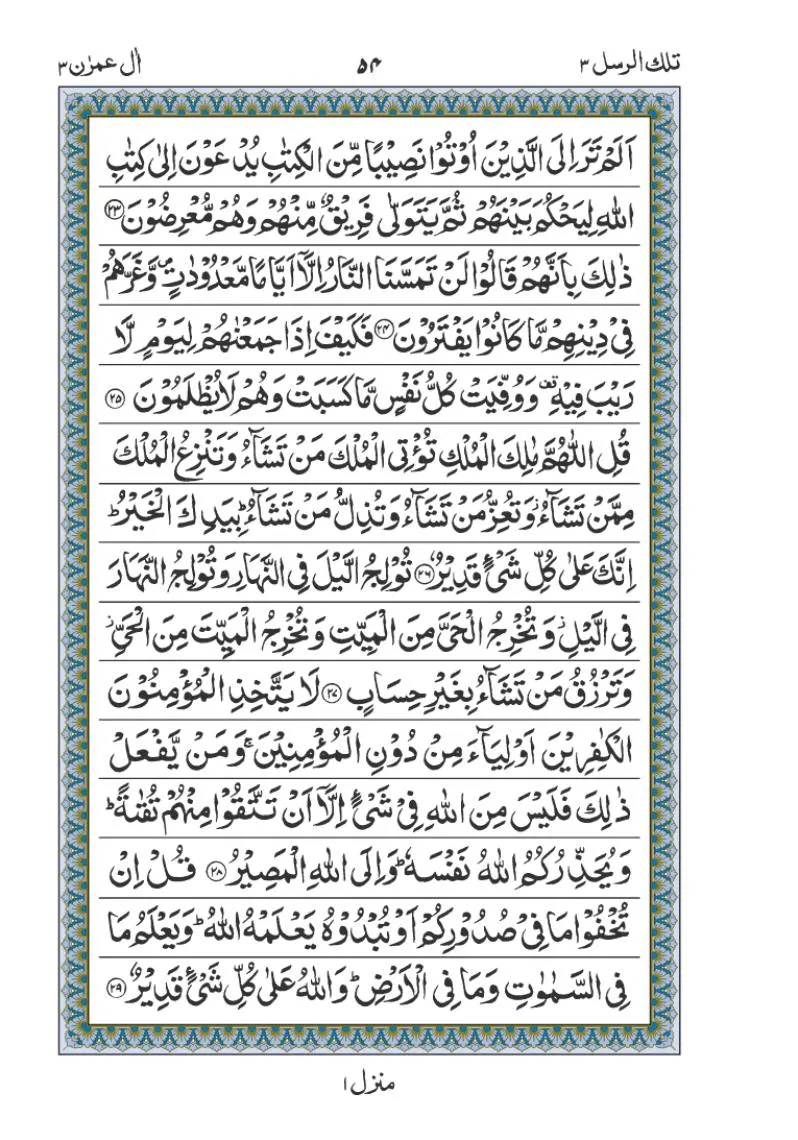 تلك الرسل ٣
٥٤
اٰل عمرٰن ٣
اَلَمْ تَرَ اِلَى الَّذِيْنَ اُوْتُوْا نَصِيْبًا مِّنَ الْكِتٰبِ يُدْعَوْنَ اِلٰى كِتٰبِ
اللّٰهِ لِيَحْكُمَ بَيْنَهُمْ ثُمَّ يَتَوَلّٰى فَرِيْقٌ مِّنْهُمْ وَهُمْ مُّعْرِضُوْنَ ﴿۲۳﴾
ذٰلِكَ بِاَنَّهُمْ قَالُوْا لَنْ تَمَسَّنَا النَّارُ اِلَّاۤ اَيَّامًا مَّعْدُوْدٰتٍ ۪ وَّغَرَّهُمْ
فِيْ دِيْنِهِمْ مَّا كَانُوْا يَفْتَرُوْنَ ﴿۲۴﴾ فَكَيْفَ اِذَا جَمَعْنٰهُمْ لِيَوْمٍ لَّا
رَيْبَ فِيْهِ ۫ وَوُفِّيَتْ كُلُّ نَفْسٍ مَّا كَسَبَتْ وَهُمْ لَا يُظْلَمُوْنَ ﴿۲۵﴾
قُلِ اللّٰهُمَّ مٰلِكَ الْمُلْكِ تُؤْتِي الْمُلْكَ مَنْ تَشَآءُ وَتَنْزِعُ الْمُلْكَ
مِمَّنْ تَشَآءُ ۫ وَتُعِزُّ مَنْ تَشَآءُ وَتُذِلُّ مَنْ تَشَآءُ ؕ بِيَدِكَ الْخَيْرُ ؕ
اِنَّكَ عَلٰى كُلِّ شَيْءٍ قَدِيْرٌ ﴿۲۶﴾ تُوْلِجُ الَّيْلَ فِي النَّهَارِ وَتُوْلِجُ النَّهَارَ
فِي الَّيْلِ ۫ وَتُخْرِجُ الْحَيَّ مِنَ الْمَيِّتِ وَتُخْرِجُ الْمَيِّتَ مِنَ الْحَيِّ ۫
وَتَرْزُقُ مَنْ تَشَآءُ بِغَيْرِ حِسَابٍ ﴿۲۷﴾ لَا يَتَّخِذِ الْمُؤْمِنُوْنَ
الْكٰفِرِيْنَ اَوْلِيَآءَ مِنْ دُوْنِ الْمُؤْمِنِيْنَ ۚ وَمَنْ يَّفْعَلْ
ذٰلِكَ فَلَيْسَ مِنَ اللّٰهِ فِيْ شَيْءٍ اِلَّاۤ اَنْ تَتَّقُوْا مِنْهُمْ تُقٰىةً ؕ
وَيُحَذِّرُكُمُ اللّٰهُ نَفْسَهٗ ؕ وَاِلَى اللّٰهِ الْمَصِيْرُ ﴿۲۸﴾ قُلْ اِنْ
تُخْفُوْا مَا فِيْ صُدُوْرِكُمْ اَوْ تُبْدُوْهُ يَعْلَمْهُ اللّٰهُ ؕ وَيَعْلَمُ مَا
فِي السَّمٰوٰتِ وَمَا فِي الْاَرْضِ ؕ وَاللّٰهُ عَلٰى كُلِّ شَيْءٍ قَدِيْرٌ ﴿۲۹﴾
منزل ١